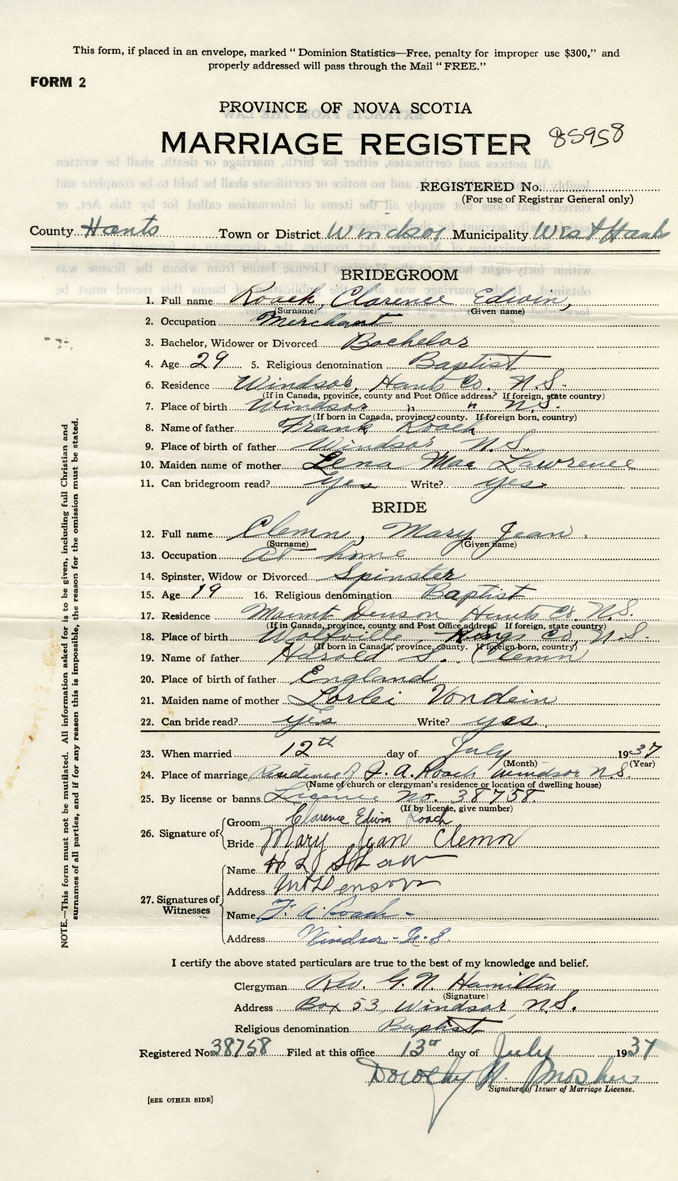 This form, if placed in an envelope, marked "Dominion Statistics—Free, penalty for improper use $300," and
properly addressed will pass through the Mail "FREE."
FORM 2
PROVINCE OF NOVA SCOTIA
MARRIAGE REGISTER 85958
REGISTERED No.
(For use of Registrar General only)
County Hants Town or District Windsor Municipality West Hants
BRIDEGROOM
1. Full name Roach, Clarence Edwin,
(Surname) (Given name)
2. Occupation Merchant
3. Bachelor, Widower or Divorced Bachelor
4. Age 29 5. Religious denomination Baptist
6. Residence Windsor, Hants Co. N.S.
(If in Canada, province, county and Post Office address. If foreign, state country)
7. Place of birth Windsor " " N.S.
(If born in Canada, province, county. If foreign born, country)
8. Name of father Frank Roach
9. Place of birth of father Windsor N.S.
10. Maiden name of mother Lena Mac Lawrence
11. Can bridegroom read? Yes Write? yes
BRIDE
12. Full name Clemn, Mary Jean.
(Surname) (Given name)
13. Occupation At home
14. Spinster, Widow or Divorced Spinster
15. Age 19 16. Religious denomination Baptist
17. Residence Mount Denson Hants Co. N.S.
(If in Canada, province, county and Post Office address. If foreign, state country)
18. Place of birth Wolfville, Kings Co, N.S.
(If born in Canada, province, county. If foreign born, country)
19. Name of father Harold S. Clemn
20. Place of birth of father England
21. Maiden name of mother Lorlei Vondein
22. Can bride read? yes Write? yes
23. When married 12th day of July 1937
(Month) (Year)
24. Place of marriage Residence of F. A. Roach Windsor N.S.
(Name of church or clergyman's residence or location of dwelling house)
25. By license or banns Licence No. 38758
(If by license, give number)
26. Signature of Groom Clarence Edwin Roach
Bride Mary Jean Clemn
27. Signatures of Witnesses Name H L Shaw
Address Mt Denson
Name F. A. Roach -
Address Windsor - N.S.
I certify the above stated particulars are true to the best of my knowledge and belief.
Clergyman Rev. G. N. Hamilton
(Signature)
Address Box 53, Windsor, N.S.
Religious denomination Baptist
Registered No. 38758 Filed at this office 13th day of July 1937
Dorothy Mosher
Signature of Issuer of Marriage License.
[SEE OTHER SIDE]
NOTE.—This form must not be mutilated. All information asked for is to be given, including full Christian and
surnames of all parties, and if for any reason this is impossible, the reason for the omission must be stated.